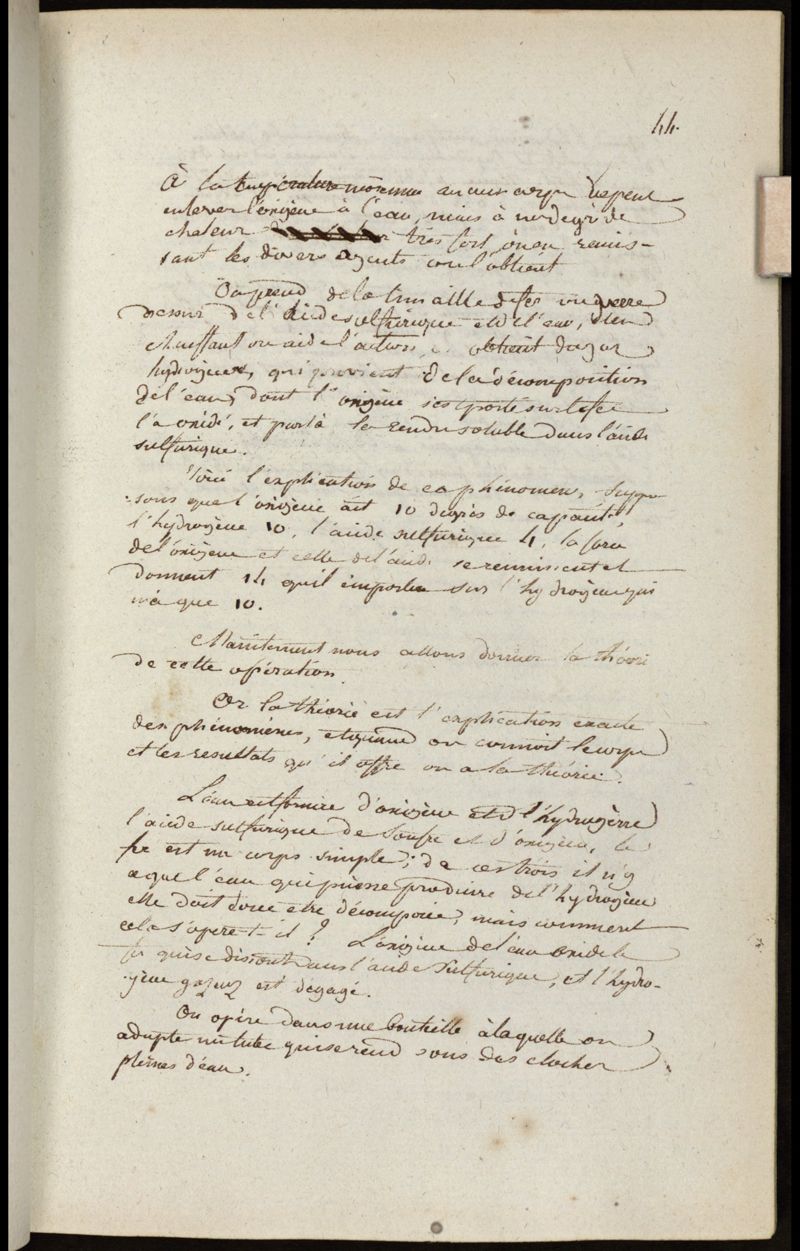 44.
À la température même aucun corps ne peut
enlever l'oxigène à l'eau, mais à un degré de
chaleur très fort, ou en réunis-
sant les divers agents on l'obtient
On prend de la limaille de fer on verse
dessus de l'acide sulfurique et de l'eau, d'en
chauffant on aide l'action, obtient du gaz
hydrogène, qui provient de la décomposition
de l'eau, dont l'oxigène s'est porté sur le fer
l'a oxidé, et par là le rendu soluble dans l'acide
sulfurique.
Voici l'explication de ce phénomène, suppo-
sons que l'oxigène ait 10 degrés de capacité,
l'hydrogène 10, l'acide sulfurique 4, la force
de l'oxigène et celle de l'acide se reunissent et
donnent 14 qu'il emporte sur l'hydrogène qui
n'a que 10.
Maintenant nous allons donner la théorie
de cette opération.
Or la théorie est l'explication exacte
des phénomènes, et quand on connoit le corps
et les resultats qu'il offre on a la théorie.
L'eau est formée d'oxigène et d'hydrogène
l'acide sulfurique de soufre et d'oxigène, le
fer est un corps simple; de ces trois il n'y
a que l'eau qui puisse produire de l'hydrogène
elle doit donc etre décomposée, mais comment
cela s'opere-t-il? L'oxigène de l'eau oxide le
fer qui se dissout dans l'acide sulfurique, et l'hydro-
gène gazeux est dégagé.
On opère dans une bouteille à laquelle on
adapte un tube qui se rend sous des cloches
pleines d'eau.